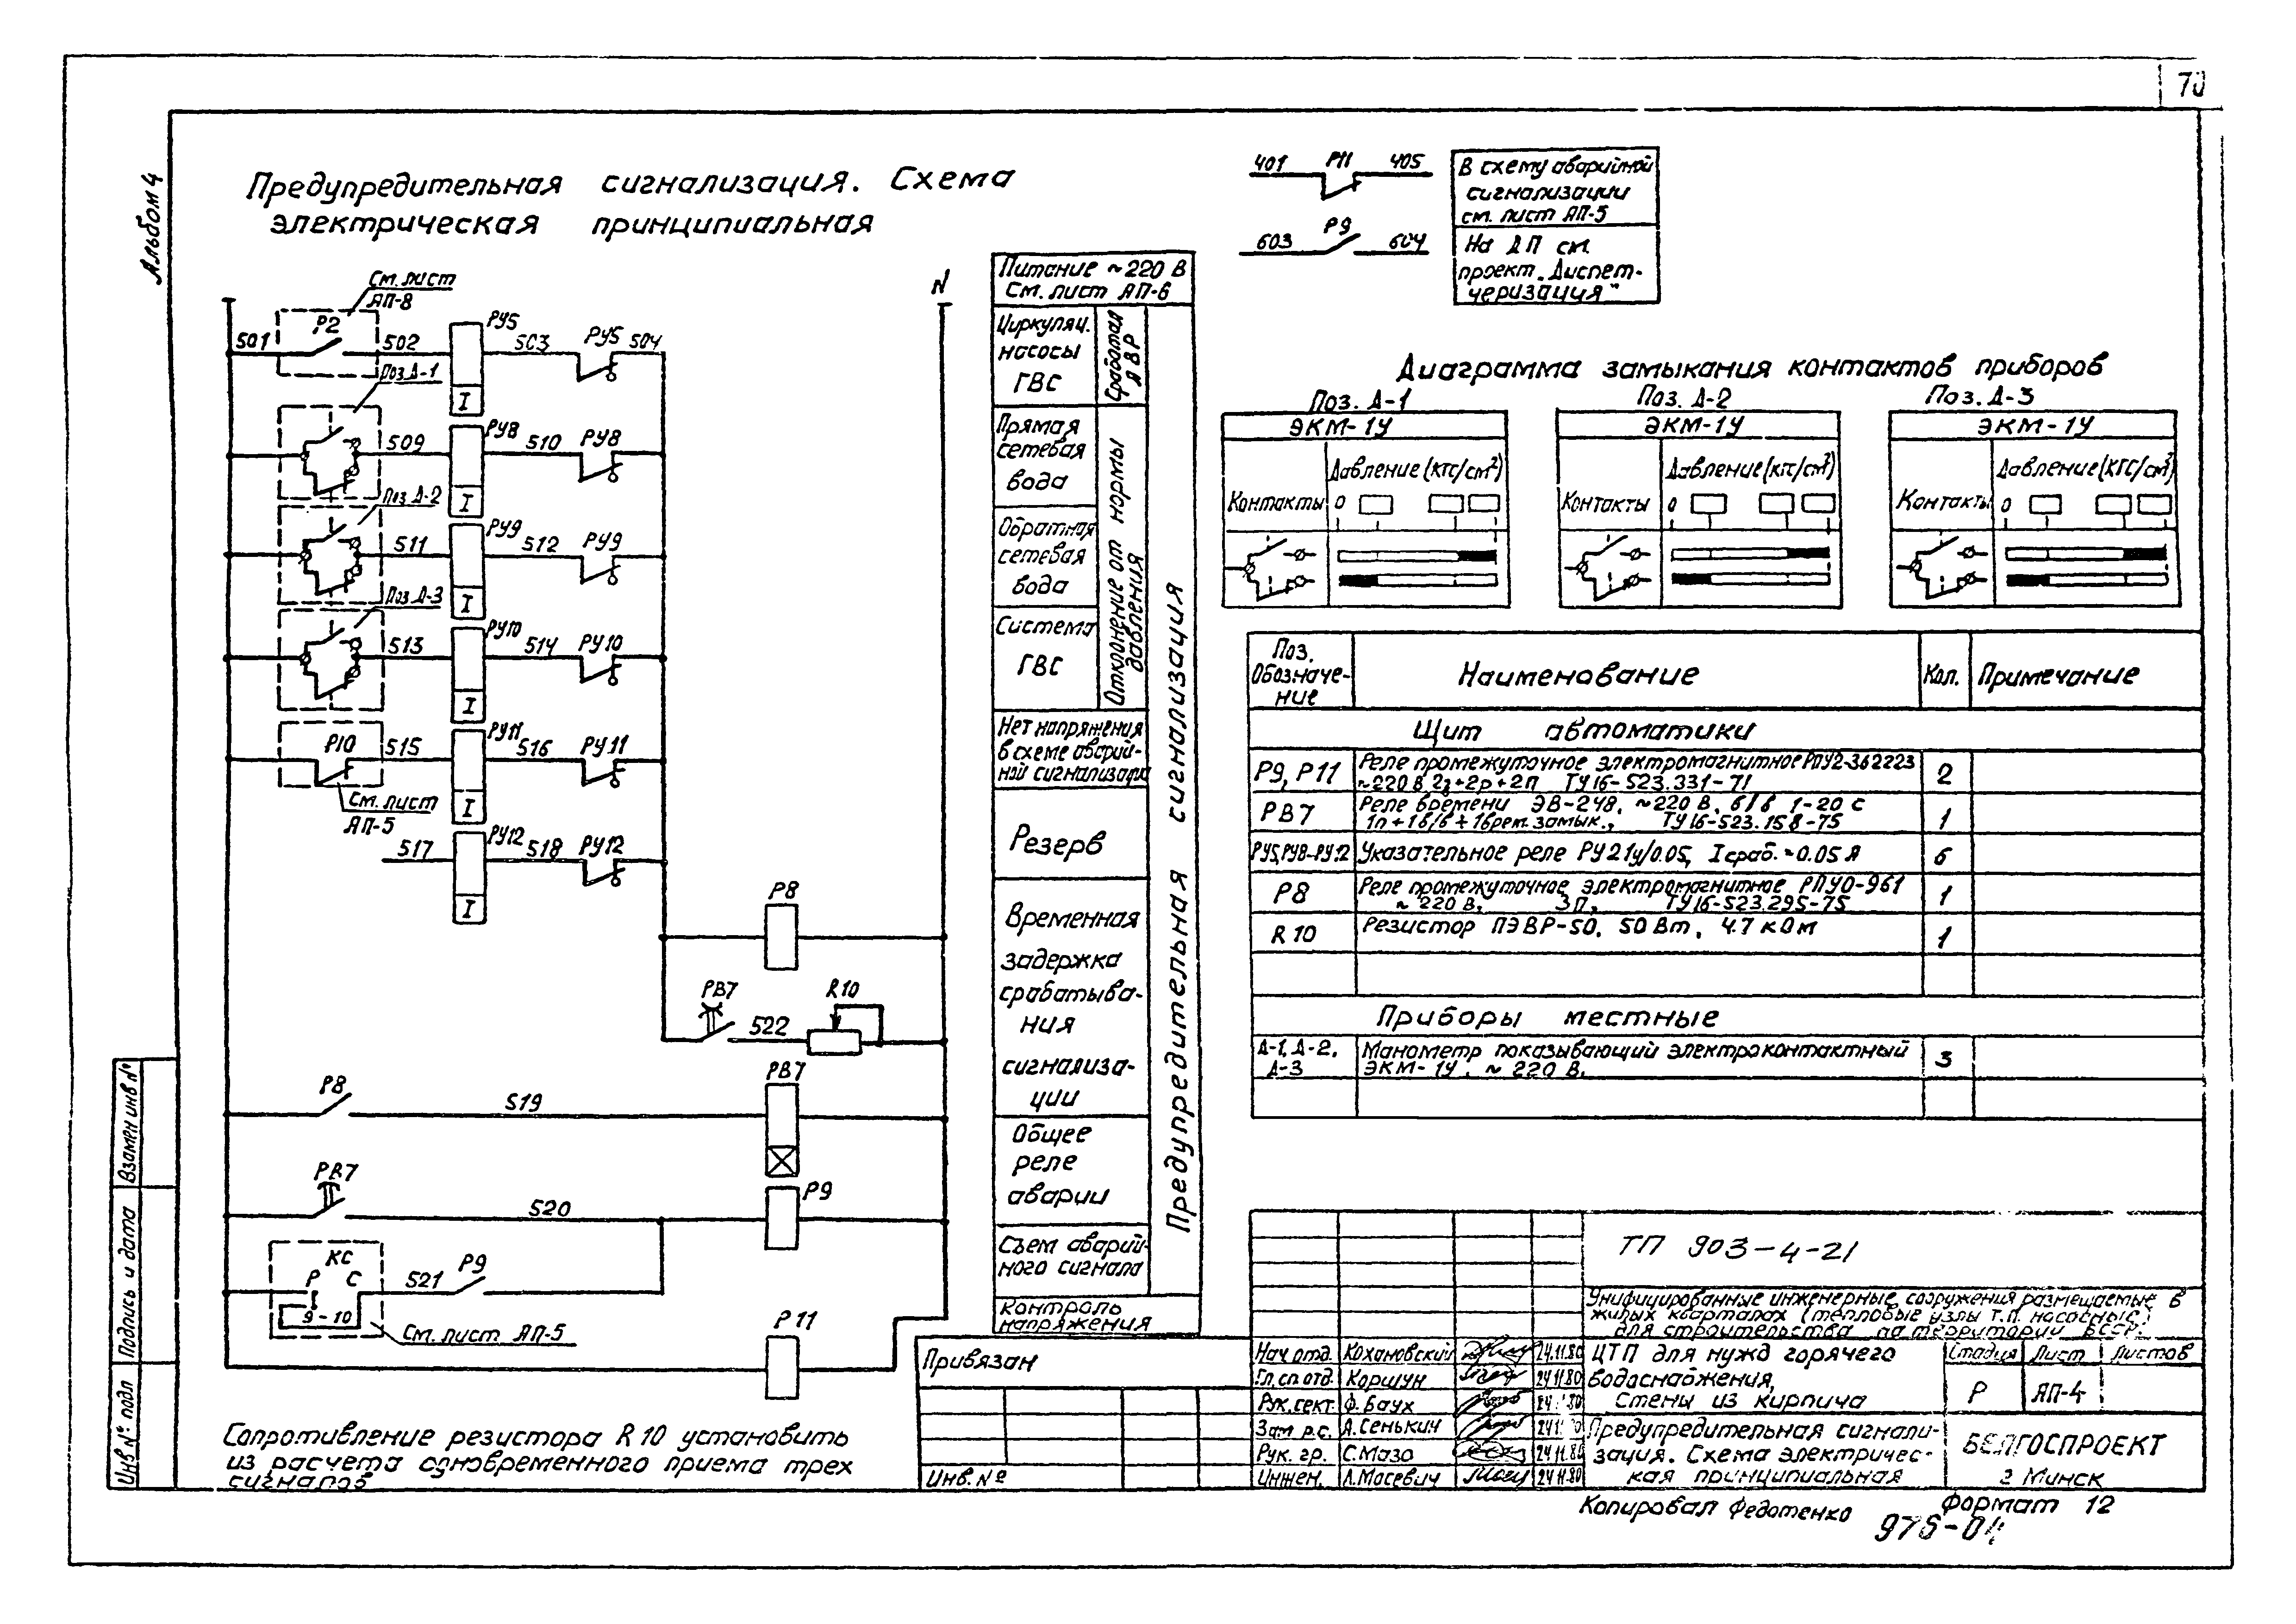 70
Альбом 4
Предупредительная сигнализация. Схема
электрическая принципиальная
401 Р11 405
603 Р9 604
В схему аварийной
сигнализации
см. лист АП-5
На ДП см.
проект „Диспет-
черизация"
См. лист
АП-8
501 Р2 502 РУ5 503 РУ5 504
I
Поз. Д-1
509 РУ8 510 РУ8
I
Поз. Д-2
511 РУ9 512 РУ9
I
Поз. Д-3
513 РУ10 514 РУ10
I
Р10 515 РУ11 516 РУ11
I
См. лист
АП-5
517 РУ12 518 РУ12
I
N
Р8
РВ7 522 R10
Р8 519 РВ7
РВ7 520 Р9
КС
Р С
9-10
521 Р9
См. лист АП-5
Р11
Питание ~220 В
См. лист АП-6
Циркуляц.
насосы
ГВС
Сработал
АВР
Прямая
сетевая
вода
Обратная
сетевая
вода
Система
ГВС
Отклонение от нормы
давления
Нет напряжения
в схеме аварий-
ной сигнализации
Резерв
Временная
задержка
срабатыва-
ния
сигнализа-
ции
Общее
реле
аварии
Съем аварий-
ного сигнала
Контроль
напряжения
Предупредительная сигнализация
Диаграмма замыкания контактов приборов
Поз. Д-1 Поз. Д-2 Поз. Д-3
ЭКМ-1У ЭКМ-1У ЭКМ-1У
Контакты Давление (кгс/см²) 0
Контакты Давление (кгс/см²) 0
Контакты Давление (кгс/см²) 0
Поз.
Обозначе-
ние
Наименование Кол. Примечание
Щит автоматики
Р9, Р11 Реле промежуточное электромагнитное РПУ2-362223 2
~220 В 2з+2р+2п ТУ16-523.331-71
РВ7 Реле времени ЭВ-248, ~220 В, б/в 1-20 с 1
1п+1б/в+1врем. замык., ТУ16-523.158-75
РУ5,РУ8-РУ12 Указательное реле РУ21У/0.05, Iсраб.=0.05 А 6
Р8 Реле промежуточное электромагнитное РПУ0-961 1
~220 В, 3п, ТУ16-523.295-75
R10 Резистор ПЭВР-50, 50 Вт, 4.7 кОм 1
Приборы местные
Д-1, Д-2,
Д-3
Манометр показывающий электроконтактный 3
ЭКМ-1У, ~220 В.
ТП 903-4-21
Унифицированные инженерные сооружения размещаемые в
жилых кварталах (тепловые узлы т.п. насосные)
для строительства на территории БССР.
Нач. отд. Кохановский 24.11.80
Гл. сп. отд. Коршун 24.11.80
Рук. сект. Ф. Баух
Зам. р.с. А. Сенькич
Рук. гр. С. Мазо 24.11.80
Инжен. Л. Масевич 24.11.80
ЦТП для нужд горячего
водоснабжения,
Стены из кирпича
Стадия Лист Листов
Р АП-4
Предупредительная сигнали-
зация. Схема электричес-
кая принципиальная
БЕЛГОСПРОЕКТ
г Минск
Привязан
Инв. №
Сопротивление резистора R10 установить
из расчета одновременного приема трех
сигналов
Взамен инв №
Подпись и дата
Инв № подл
Копировал Федотенко
Формат 12
976-04